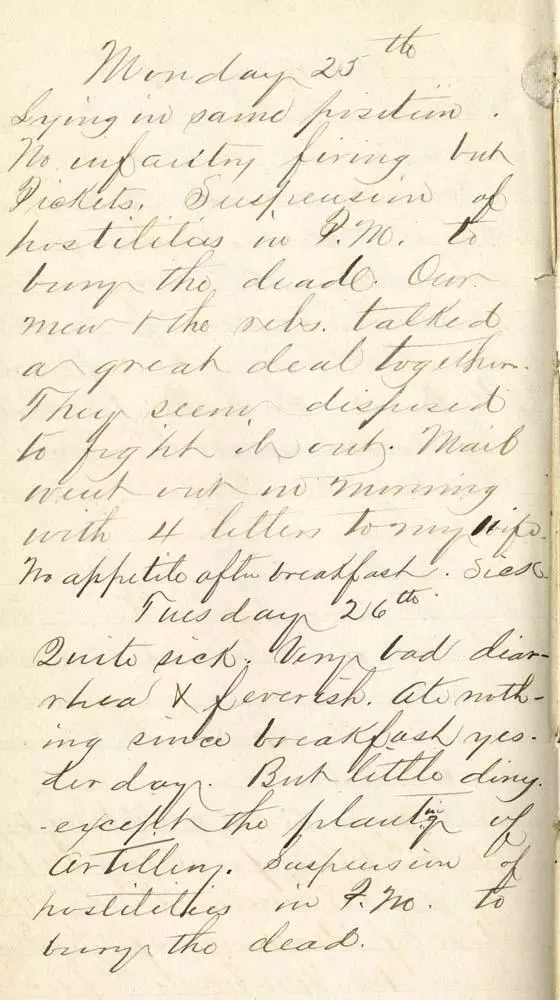 Monday 25th
Lying in same position.
No infantry firing but
Pickets. Suspension of
hostilities in P.M. to
bury the dead. Our
men & the rebs. talked
a great deal together.
They seem disposed
to fight it out. Mail
went out in morning
with 4 letters to my wife.
No appetite after breakfast. Sick
Tuesday 26th
Quite sick. Very bad diar-
rhea & feverish. Ate noth-
ing since breakfast yes-
terday. But little doing.
except the planting of
Artillery. Suspension of
hostilities in P.M. to
bury the dead.